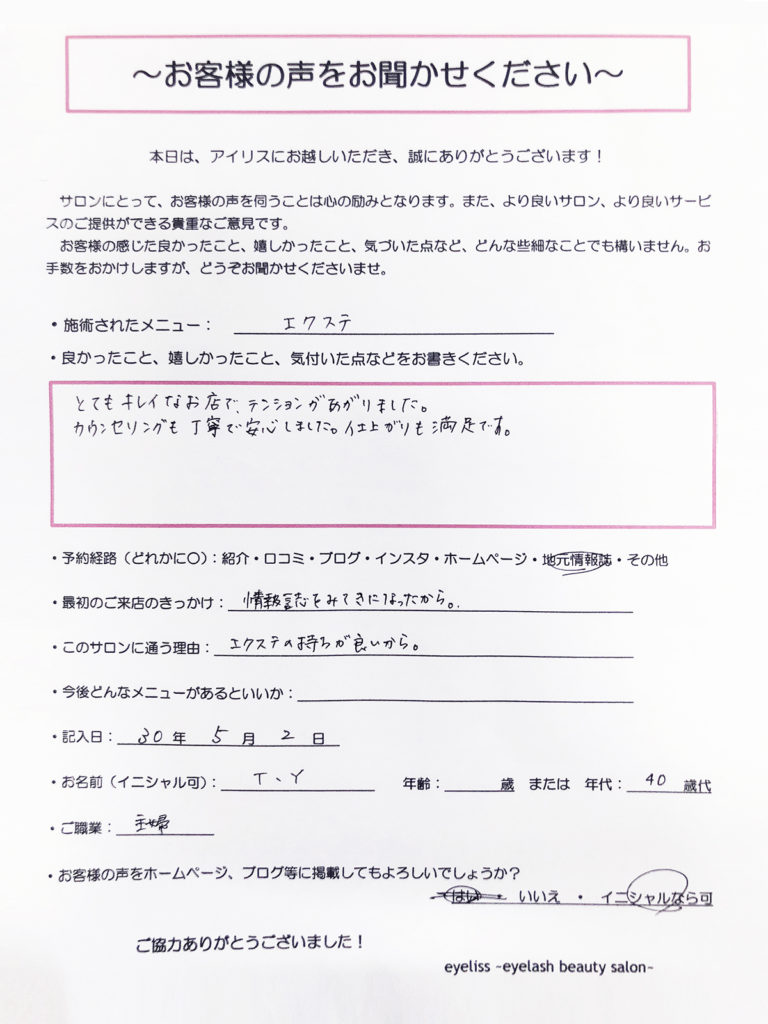 ～お客様の声をお聞かせください～
本日は、アイリスにお越しいただき、誠にありがとうございます！
サロンにとって、お客様の声を伺うことは心の励みとなります。また、より良いサロン、より良いサービ
スのご提供ができる貴重なご意見です。
お客様の感じた良かったこと、嬉しかったこと、気づいた点など、どんな些細なことでも構いません。お
手数をおかけしますが、どうぞお聞かせくださいませ。
・施術されたメニュー： エクステ
・良かったこと、嬉しかったこと、気付いた点などをお書きください。
とてもキレイなお店で、テンションがあがりました。
カウンセリングも丁寧で安心しました。仕上がりも満足です。
・予約経路（どれかに〇）：紹介・口コミ・ブログ・インスタ・ホームページ・地元情報誌・その他
・最初のご来店のきっかけ： 情報誌をみてきになったから。
・このサロンに通う理由： エクステの持ちが良いから。
・今後どんなメニューがあるといいか：
・記入日： 30 年 5 月 2 日
・お名前（イニシャル可）： T、Y 年齢： 歳 または 年代： 40 歳代
・ご職業： 主婦
・お客様の声をホームページ、ブログ等に掲載してもよろしいでしょうか？
はい ・ いいえ ・ イニシャルなら可
ご協力ありがとうございました！
eyeliss ~eyelash beauty salon~